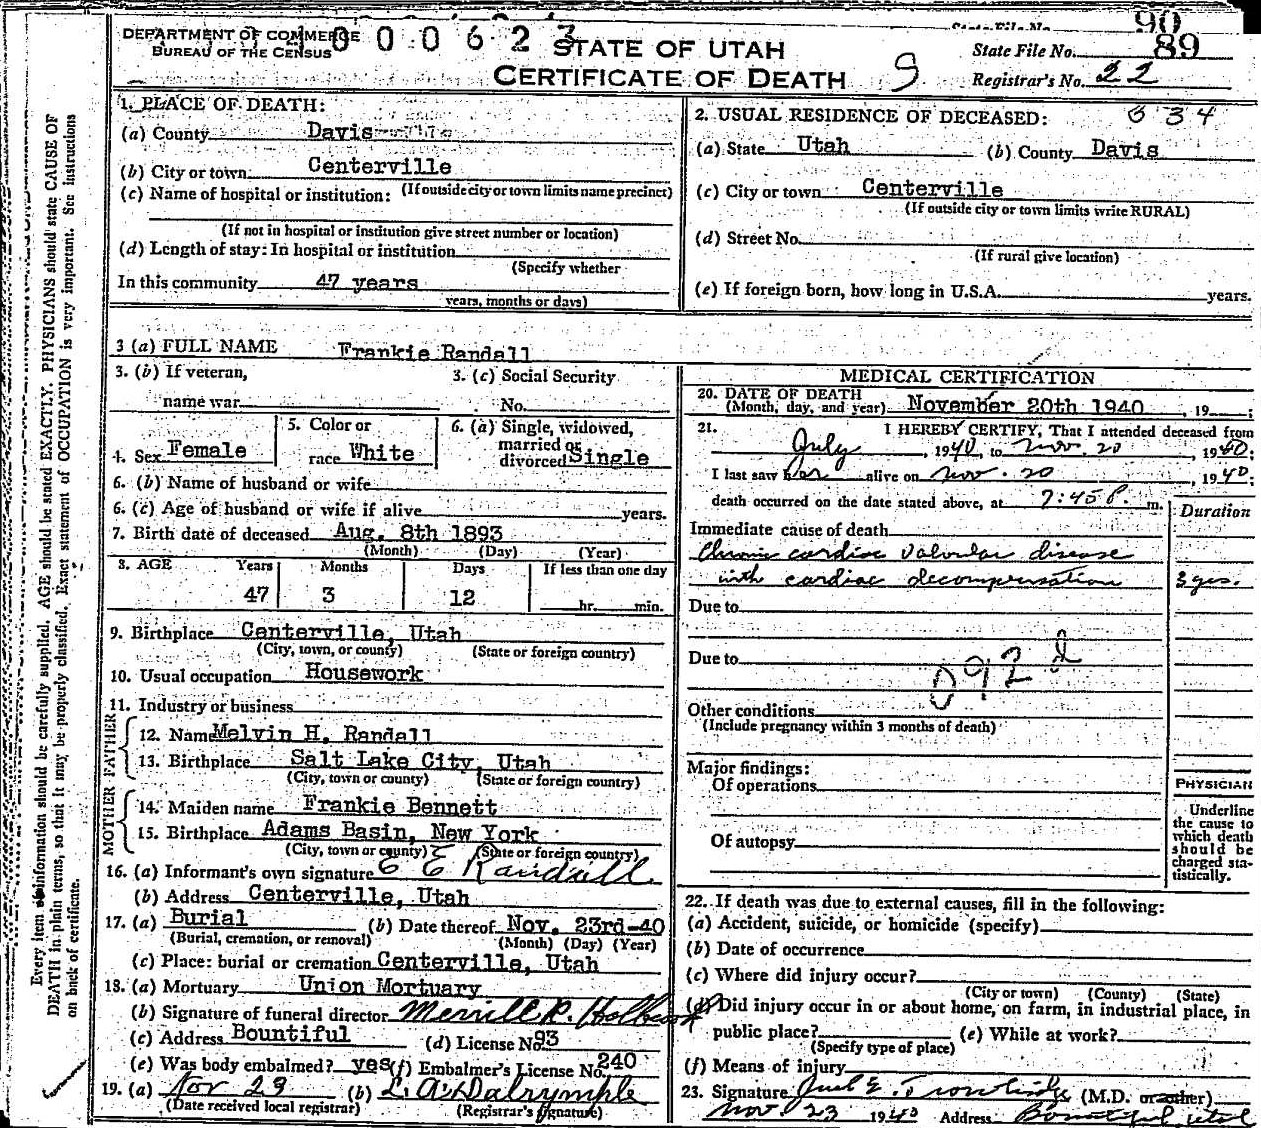 DEPARTMENT OF COMMERCE
BUREAU OF THE CENSUS
0 0 0 6 2 3
STATE OF UTAH
CERTIFICATE OF DEATH
9
State File No.
90
State File No. 89
Registrar's No. 22
1. PLACE OF DEATH:
(a) County Davis
(b) City or town: Centerville
(c) Name of hospital or institution: (If outside city or town limits name precinct)
(If not in hospital or institution give street number or location)
(d) Length of stay: In hospital or institution
(Specify whether
In this community 47 years
years, months or days)
2. USUAL RESIDENCE OF DECEASED: 634
(a) State Utah (b) County Davis
(c) City or town Centerville
(If outside city or town limits write RURAL)
(d) Street No.
(If rural give location)
(e) If foreign born, how long in U.S.A. years.
3 (a) FULL NAME Frankie Randall
3. (b) If veteran,
name war
3. (c) Social Security
No.
4. Sex Female
5. Color or
race White
6. (a) Single, widowed,
married or
divorced Single
6. (b) Name of husband or wife
6. (c) Age of husband or wife if alive years.
7. Birth date of deceased Aug. 8th 1893
(Month) (Day) (Year)
8. AGE Years Months Days If less than one day
47 3 12 hr. min.
9. Birthplace Centerville, Utah
(City, town, or county) (State or foreign country)
10. Usual occupation Housework
11. Industry or business
FATHER
12. Name Melvin H. Randall
13. Birthplace Salt Lake City, Utah
(City, town or county) (State or foreign country)
MOTHER
14. Maiden name Frankie Bennett
15. Birthplace Adams Basin, New York
(City, town or county) (State or foreign country)
16. (a) Informant's own signature E E Randall
(b) Address Centerville, Utah
17. (a) Burial (b) Date thereof Nov. 23rd-40
(Burial, cremation, or removal) (Month) (Day) (Year)
(c) Place: burial or cremation Centerville, Utah
18. (a) Mortuary Union Mortuary
(b) Signature of funeral director Merrill R. Holbrook
(c) Address Bountiful (d) License No. 93
(e) Was body embalmed? yes (f) Embalmer's License No. 240
19. (a) Nov 23 (b) L. A. Dalrymple
(Date received local registrar) (Registrar's signature)
MEDICAL CERTIFICATION
20. DATE OF DEATH
(Month, day, and year) November 20th 1940, 19 ;
21. I HEREBY CERTIFY, That I attended deceased from
July, 1940, to Nov. 20, 1940;
I last saw her alive on Nov. 20, 1940;
death occurred on the date stated above, at 7:45 P. m.
Duration
Immediate cause of death
Chronic cardiac valvular disease
with cardiac decompensation 3 yrs.
Due to
Due to
092 d
Other conditions
(Include pregnancy within 3 months of death)
Major findings:
Of operations
Of autopsy
PHYSICIAN
Underline
the cause to
which death
should be
charged sta-
tistically.
22. If death was due to external causes, fill in the following:
(a) Accident, suicide, or homicide (specify)
(b) Date of occurrence
(c) Where did injury occur?
(City or town) (County) (State)
(d) Did injury occur in or about home, on farm, in industrial place, in
public place? (e) While at work?
(Specify type of place)
(f) Means of injury
23. Signature Trowbridge (M.D. or other)
Nov 23 1940 Address Bountiful, Utah
Every item of information should be carefully supplied. AGE should be stated EXACTLY. PHYSICIANS should state CAUSE OF
DEATH in plain terms, so that it may be properly classified. Exact statement of OCCUPATION is very important. See instructions
on back of certificate.